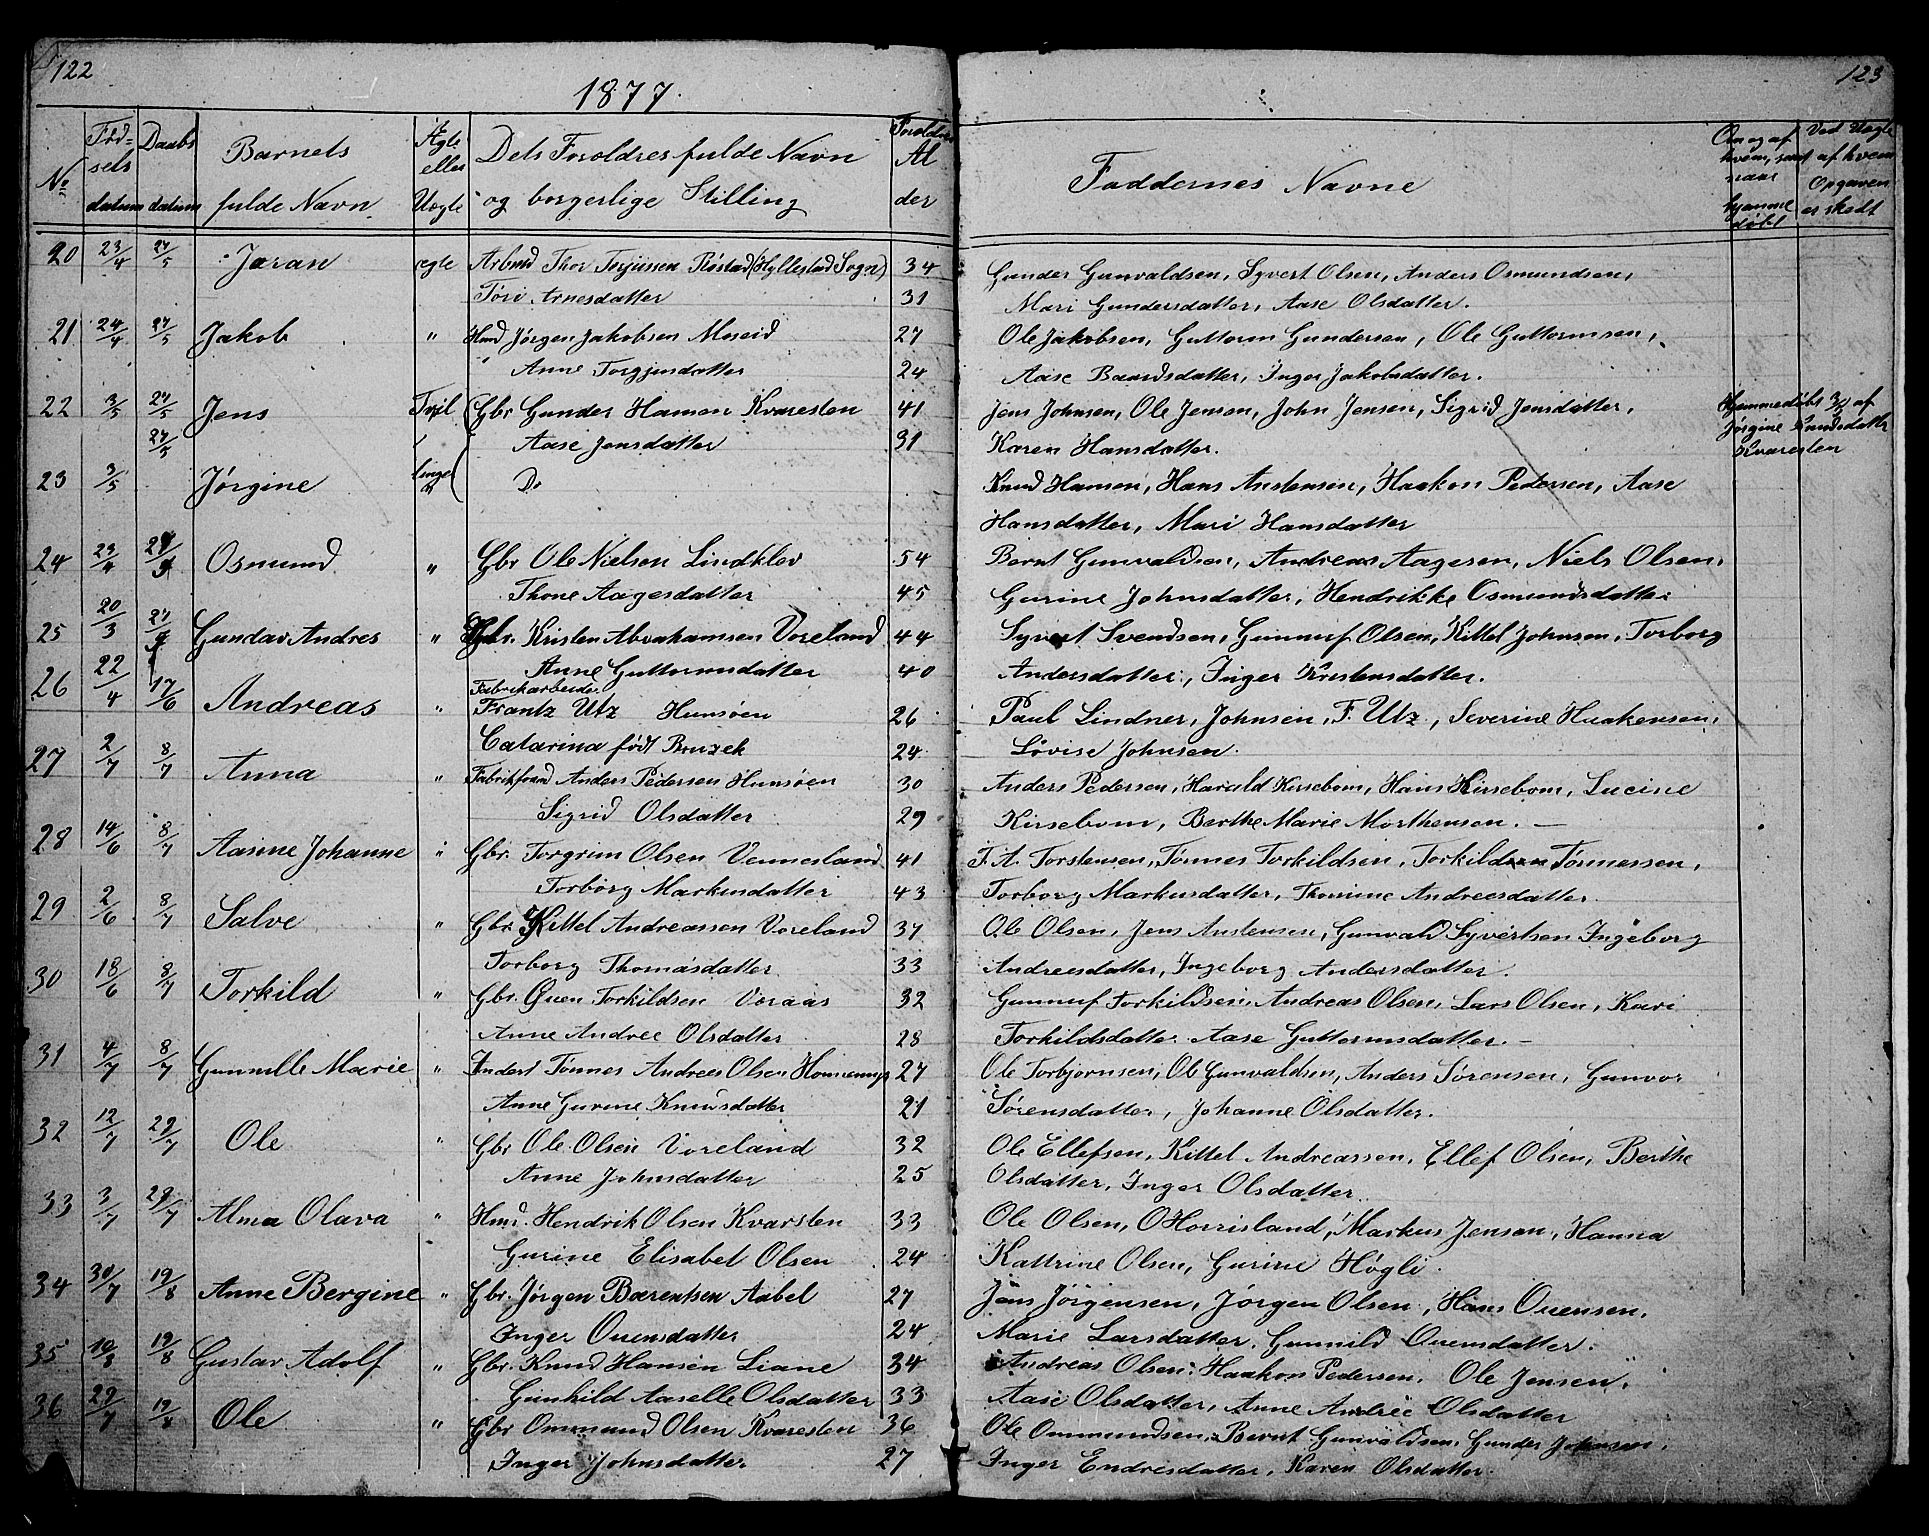 122
123
1877.
No
Fødselsdatum
Daabsdatum
Barnets fulde Navn
Ægte eller Uægte
Dets Foreldres fulde Navn og borgerlige Stilling
Foreldres Alder
Faddernes Navne
Om og af hvem, samt naar hjemmedøbt
Ved Uægte af hvem Opgaven er skedt
20 23/4 27/5 Jøran ægte Arbmd Thor Torjussen Røstad (Hyllestad Sogn) 34 Gunder Gunvaldsen, Syvert Olsen, Anders Osmundsen,
Tori Arnesdatter 31 Mari Gundersdatter, Aase Olsdatter.
21 24/4 27/5 Jakob " Hmd Jørgen Jakobsen Moseid 27 Ole Jakobsen, Guttorm Gundersen, Ole Guttormsen,
" Anne Torgjusdatter 24 Aase Baardsdatter, Inger Jakobsdatter.
22 3/5 27/5 Jens Tvil Gbr Gunder Hansen Kvaresten 41 Jens Johnsen, Ole Jensen, John Jensen, Sigrid Jensdatter, Hjemmedøbt 3/5 af
27/5 Aase Jensdatter 31 Karen Hansdatter. Jørgine Knudsdattr
Kvaresten
23 3/5 Jørgine linger Do Knud Hansen, Hans Anstensen, Haakon Pedersen, Aase
Hansdatter, Mari Hansdatter
24 23/4 Osmund " Gbr Ole Nielsen Lindkløv 54 Bernt Gunvaldsen, Andreas Aagesen, Niels Olsen,
Thone Aagesdatter 45 Gurine Johnsdatter, Hendrikke Osmundsdatter
25 20/3 Gundav Andres " Gbr. Kristen Abrahamsen Voreland 44 Syvert Svendsen, Gunnuf Olsen, Kittel Johnsen, Torborg
Anne Guttormsdatter 40 Andersdatter, Inger Kristensdatter.
26 22/4 17/6 Andreas " Fabrikarbeider
Frantz Utz Hunsøen 26 Paul Lindner, Johnsen, F. Utz, Severine Haakensen,
Catarina født Bruzek 24 Lovise Johnsen.
27 2/7 8/7 Anna " Fabrikform Anders Pedersen Hunsøen 30 Anders Pedersen, Harald Kirsebom, Hans Kirsebom, Lucine
Sigrid Olsdatter 29 Kirsebom, Berthe Marie Morthensen. —
28 14/6 8/7 Aasine Johanne " Gbr. Torgrim Olsen Vennesland 41 T. A. Torstensen, Tønnes Torkildsen, Torkild Tønnessen,
Torborg Markusdatter 43 Torborg Markusdatter, Thomine Andreesdatter.
29 2/6 8/7 Salve " Gbr. Kittel Andreassen Voreland 37 Ole Olsen, Jens Anstensen, Gunvald Syvertsen Ingeborg
Torborg Thomasdatter 33 Andreesdatter, Ingeborg Andersdatter.
30 18/6 8/7 Torkild " Gbr. Ouen Torkildsen Veraas 32 Gunnuf Torkildsen, Andreas Olsen, Lars Olsen, Kari
Anne Andree Olsdatter 28 Torkildsdatter. Aase Guttormsdatter. —
31 4/7 8/7 Gunnille Marie " Inderst Tønnes Andreas Olsen 27 Ole Torbjørnsen, Ole Gunvaldsen, Anders Sørensen, Gunvor
Anne Gurine Knudsdatter 21 Sørensdatter, Johanne Olsdatter.
32 12/7 29/7 Ole " Gbr Ole Olsen Voreland 32 Ole Ellefsen, Kittel Andreassen, Ellef Olsen, Berthe
Anne Johnsdatter 25 Olsdatter, Inger Olsdatter.
33 3/7 29/7 Alma Olava " Hmd. Hendrik Olsen Kvarsten 33 Ole Olsen, O Horrisland, Markus Jensen, Hanna
Gurine Elisabet Olsen 24 Kattrine Olsen, Gurine Høgli.
34 30/7 19/8 Anne Bergine " Gbr. Jørgen Bærentsen Aabel 27 Jens Jørgensen, Jørgen Olsen, Hans Ouensen,
Inger Ouensdatter 24 Marie Larsdatter, Gunnild Ouensdatter.
35 10/8 19/8 Gustav Adolf " Gbr. Knud Hansen Liane 34 Andreas Olsen, Haakon Pedersen, Ole Jensen,
Gunhild Aaselle Olsdatter 33 Aase Olsdatter, Anne Andrée Olsdatter
36 29/7 19/8 Ole " Gbr Ommund Olsen Kvaresten 36 Ole Ommundsen, Bernt Gunvaldsen, Gunder Johnsen,
Inger Johnsdatter 27 Inger Endresdatter, Karen Olsdatter.